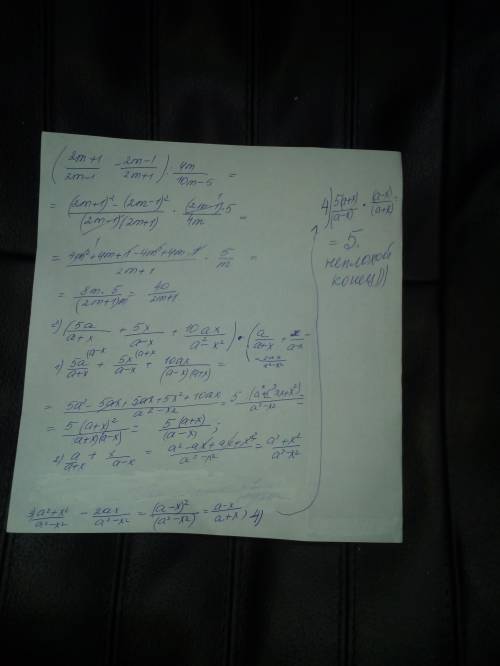 ( 2m+1/2m-1 - 2m-1/2m+1 ) · 4m/10m-5 =
= (2m+1)² - (2m-1)²/(2m-1)(2m+1) · (2m-1)·5/4m =
= 4m²+4m+1-4m²+4m-1/2m+1 · 5/m =
= 8m·5/(2m+1)m = 40/2m+1
2) ( 5a/a+x + 5x/a-x + 10ax/a²-x² ) · ( a/a+x + x/a-x - 2ax/a²-x² )
1) 5a/a+x (a-x + 5x/a-x (a+x + 10ax/(a-x)(a+x) =
= 5a²-5ax+5ax+5x²+10ax/a²-x² = 5(a²+2ax+x²)/a²-x² =
= 5(a+x)²/(a+x)(a-x) = 5(a+x)/(a-x) ;
2) a/a+x + x/a-x = a²-ax+ax+x²/a²-x² = a²+x²/a²-x²
3) a²+x²/a²-x² - 2ax/a²-x² = (a-x)²/(a²-x²) = a-x/a+x ; 4)
4) 5(a+x)/(a-x) · (a-x)/(a+x)
= 5.
неплохой
конец)))